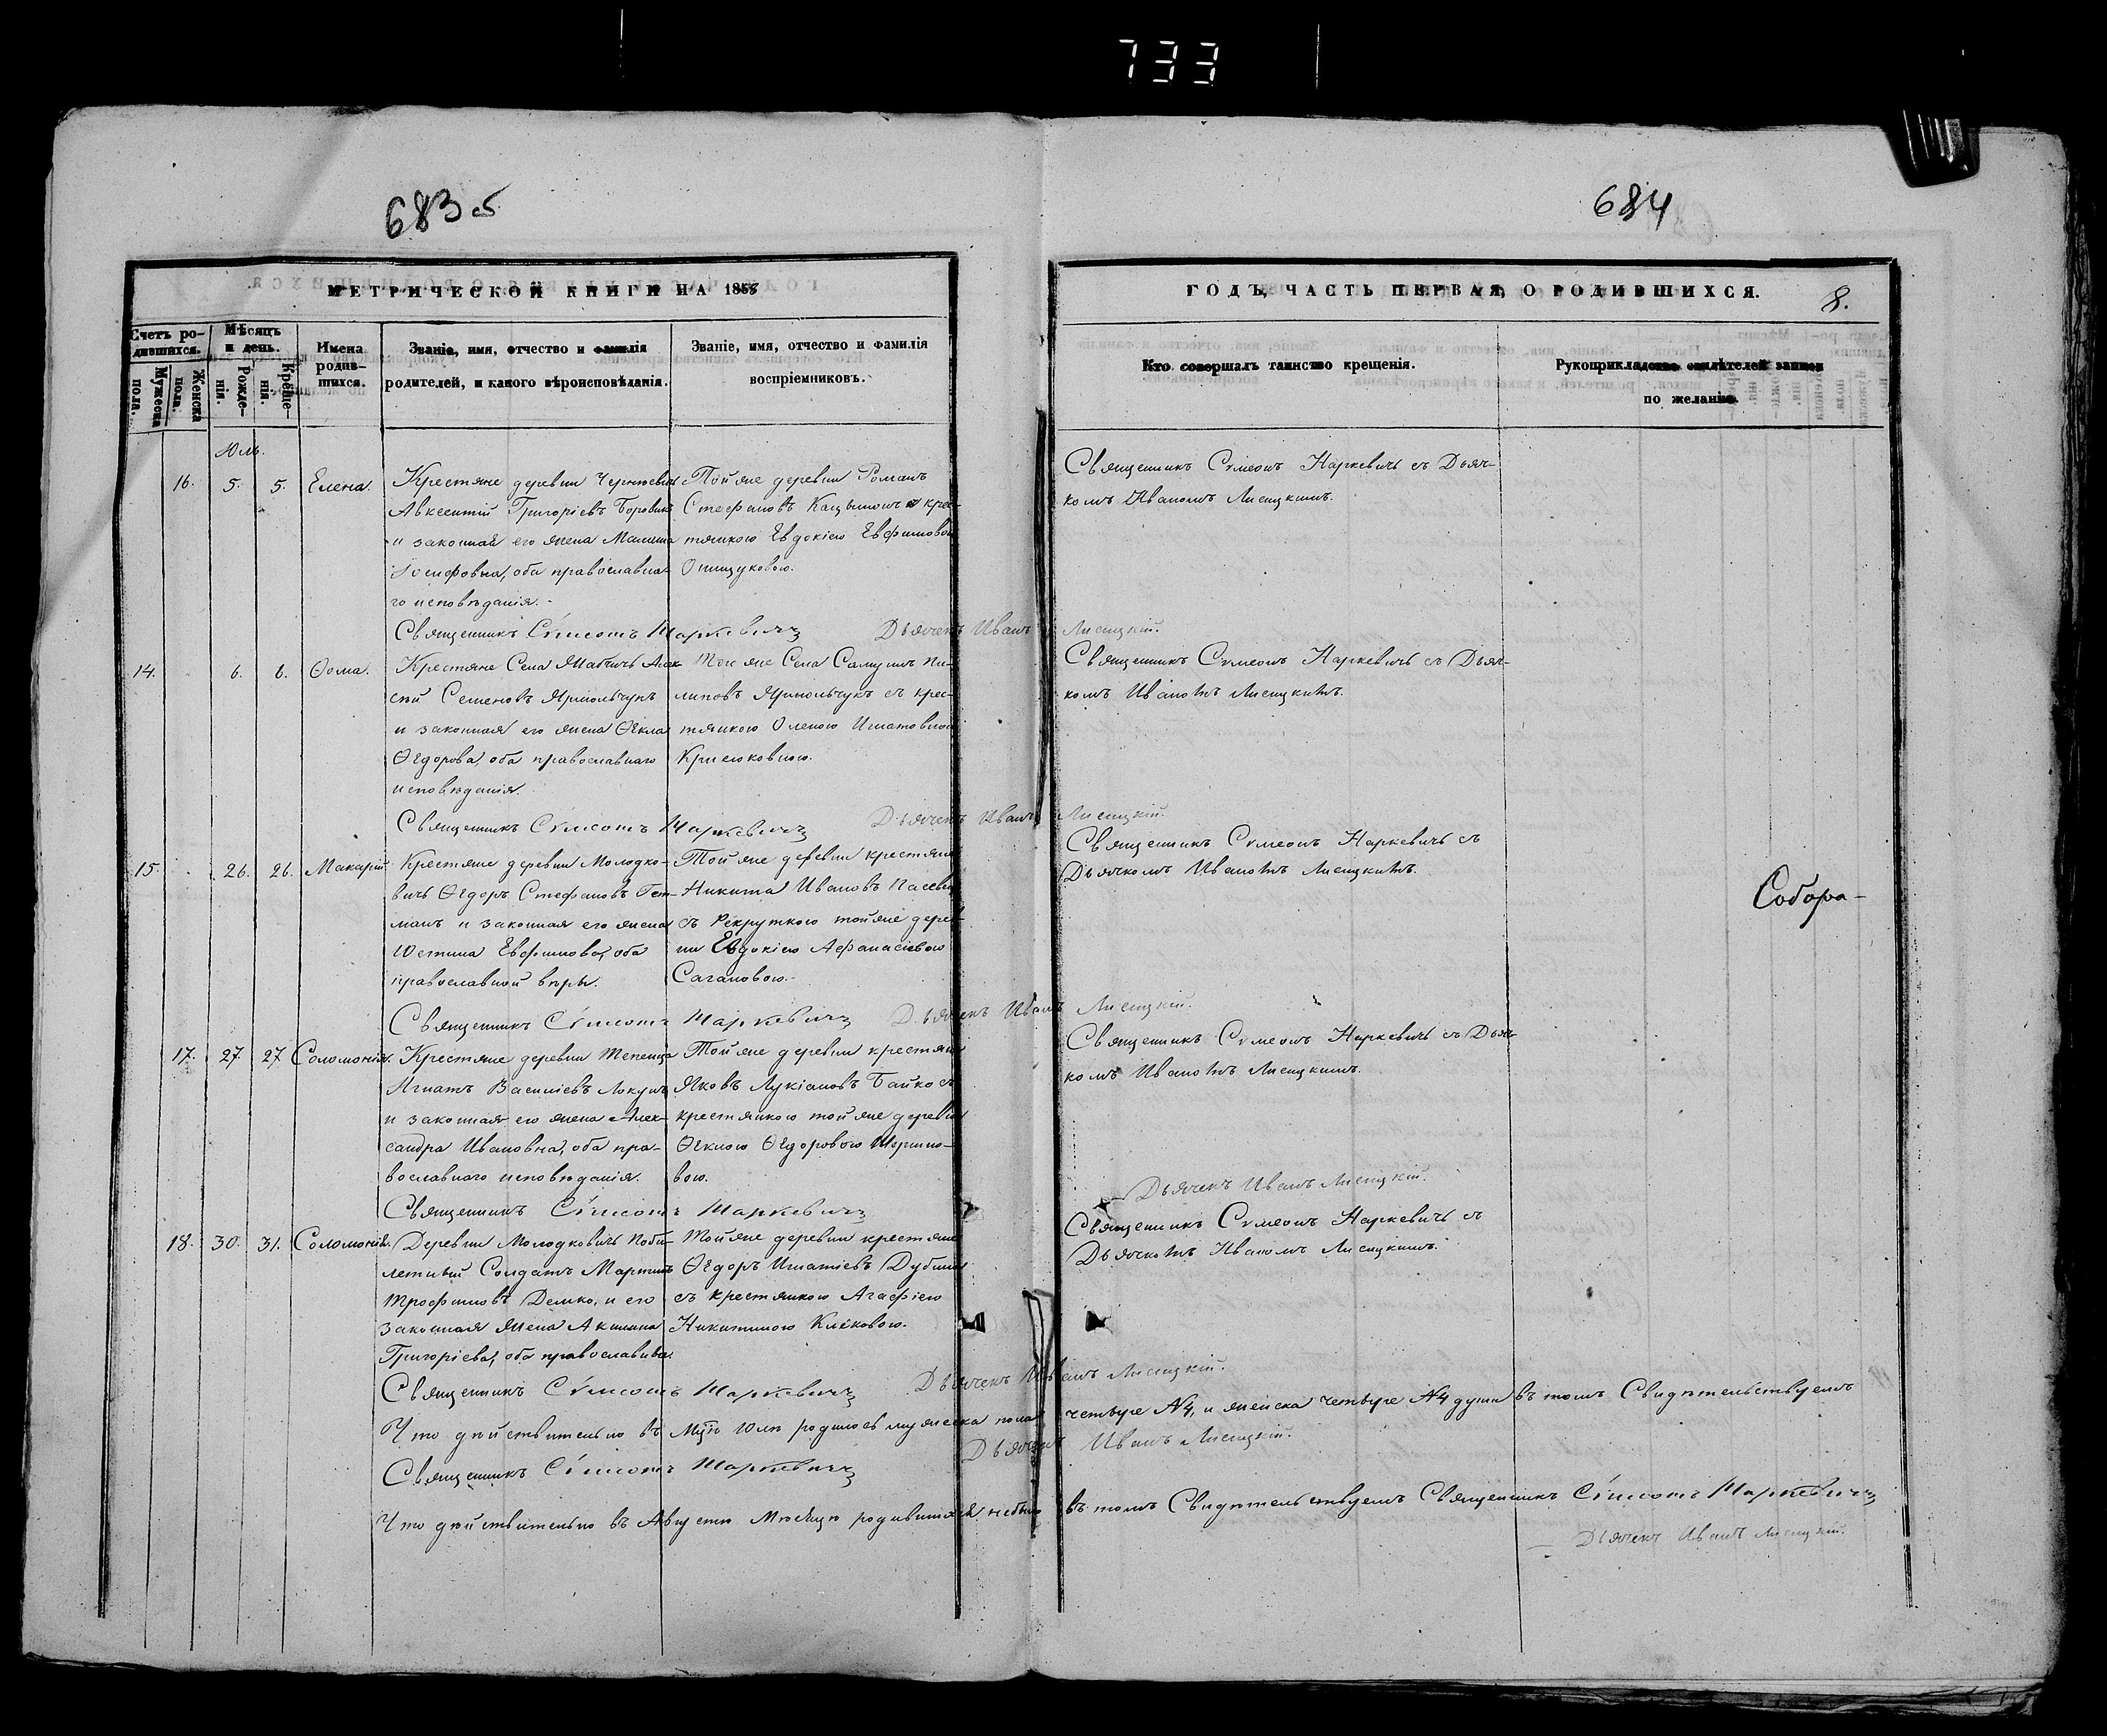 733
683 об
684
МЕТРИЧЕСКОЙ КНИГИ НА 1858
ГОДЪ, ЧАСТЬ ПЕРВАЯ, О РОДИВШИХСЯ.
8.
Счетъ ро-
дившихся.
Мужеска
пола.
Женска
пола.
Мѣсяцъ
и день.
Рожде-
нія.
Креще-
нія.
Имена
родив-
шихся.
Званіе, имя, отчество и фамилія
родителей, и какого вѣроисповѣданія.
Званіе, имя, отчество и фамилія
воспріемниковъ.
Кто совершалъ таинство крещенія.
Рукоприкладство свидѣтелей записи
по желанію.
Юль.
16. 5. 5. Елена.
Крестяне деревни
Авксентій Григоріевъ Боровикъ
и законная его жена
Іосифовна, оба православна-
го исповѣданія.
Той же деревни Романъ
Стефановъ крес-
тянкою Евдокіею Евфимовою
Онищуковою.
Священникъ Сѵмеонъ Наркевичъ съ Дьяч-
комъ Иваномъ Лисицкимъ.
Священникъ Сѵмеонъ Наркевичъ Дьячекъ Иванъ Лисицкій.
14. 6. 6. Ѳома.
Крестяне Села Алек-
сѣй Семеновъ Ярмольчукъ
и законная его жена Ѳекла
Ѳедорова, оба православнаго
исповѣданія.
Той же Села Самуилъ Фи-
липовъ Ярмольчукъ съ крес-
тянкою Оленою Игнатовною
Крисюковною.
Священникъ Сѵмеонъ Наркевичъ съ Дьяч-
комъ Иваномъ Лисицкимъ.
Священникъ Сѵмеонъ Наркевичъ Дьячекъ Иванъ Лисицкій.
15. 26. 26. Макарій.
Крестяне деревни Молодко-
вичь Ѳедоръ Стефановъ Гет-
манъ и законная его жена
Юстина Евфимова, оба
православной вѣры.
Той же деревни крестяне
Никита Ивановъ
съ Рекруткою той же дерев-
ни Евдокіею Афанасіевою
Сагановою.
Священникъ Сѵмеонъ Наркевичъ съ
Дьячкомъ Иваномъ Лисицкимъ.
Собора-
Священникъ Сѵмеонъ Наркевичъ Дьячекъ Иванъ Лисицкій.
17. 27. 27. Соломонія.
Крестяне деревни Тепенца
Игнатъ Василіевъ
и законная его жена Алек-
сандра Ивановна, оба пра-
вославнаго исповѣданія.
Той же деревни крестянинъ
Яковъ Лукіановъ Бойко съ
крестянкою той же деревни
Ѳеклою Ѳедоровою
вою.
Священникъ Сѵмеонъ Наркевичъ съ Дьяч-
комъ Иваномъ Лисицкимъ.
Священникъ Сѵмеонъ Наркевичъ
Дьячекъ Иванъ Лисицкій.
18. 30. 31. Соломонія.
Деревни Молодковичь
Солдатъ Мартинъ
Трофимовъ Демко, и его
законная жена Акилина
Григоріева, оба православныи
Той же деревни крестяне
Ѳедоръ Игнатіевъ
съ крестянкою Агафіею
Никитиною Клековою.
Священникъ Сѵмеонъ Наркевичъ съ
Дьячкомъ Иваномъ Лисицкимъ.
Священникъ Сѵмеонъ Наркевичъ Дьячекъ Иванъ Лисицкій.
Что дѣйствительно въ Юлѣ родилось мужеска пола четыре №4, и женска четыре №4 души въ томъ Свидѣтельствуемъ
Священникъ Сѵмеонъ Наркевичъ Дьячекъ Иванъ Лисицкій.
Что дѣйствительно въ Августѣ Мѣсяцѣ родившихся небыло въ томъ Свидѣтельствуемъ Священникъ Сѵмеонъ Наркевичъ
Дьячекъ Иванъ Лисицкій.